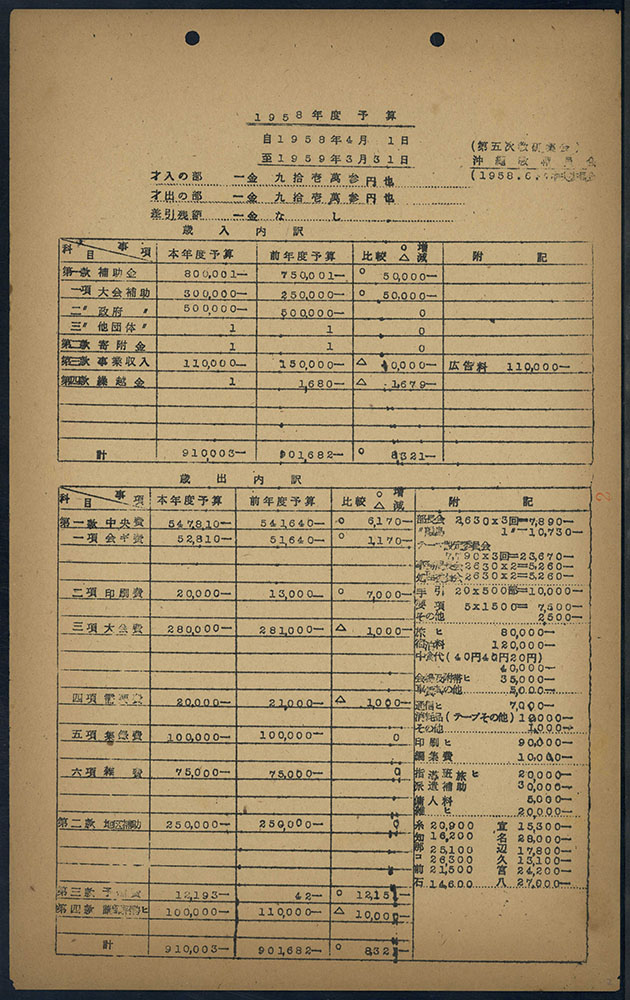 1958年度予算
自1958年4月 1日
至1959年3月31日
(第五次教研集会)
沖縄教職員会
(1958.6.
才入の部 一金 九拾壱萬参円也
才出の部 一金 九拾壱萬参円也
差引残額 一金 なし
歳入内訳
科目 事項 本年度予算 前年度予算 比較 ○増 △減 附記
第一款 補助金 800,001— 750,001— ○ 50,000—
一項 大会補助 300,000— 250,000— ○ 50,000—
二〃 政府 〃 500,000— 500,000— 0
三〃 他団体 〃 1 1 0
第二款 寄附金 1 1 0
第三款 事業収入 110,000— 150,000— △ 40,000— 広告料 110,000—
第四款 繰越金 1 1,680— △ 1,679—
計 910,003— 901,682— ○ 8,321—
歳出内訳
科目 事項 本年度予算 前年度予算 比較 ○増 △減 附記
第一款 中央費 547,810— 541,640— ○ 6,170— 部長会 2,630×3回=7,890—
1〃—10,730—
一項 会ギ費 52,810— 51,640— ○ 1,170—
7,790×3回=23,670—
2630×2=5,260—
2630×2=5,260—
二項 印刷費 20,000— 13,000— ○ 7,000— 手引 20×500部=10,000—
要項 5×1500= 7,500—
その他 2500—
三項 大会費 280,000— 281,000— △ 1,000— 旅ヒ 80,000—
宿泊料 120,000—
中食代(40円40円20円)
40,000—
35,000—
の他 5,000—
四項 20,000— 21,000— △ 1,000— 通信ヒ 7,000—
消耗品(テープその他) 12,000—
その他 1,000—
五項 集録費 100,000— 100,000— 0 印刷ヒ 90,000—
編集費 10,000—
六項 雑費 75,000— 75,000— 0 指導班旅ヒ 20,000—
派遣補助 30,000—
傭人料 5,000—
雑ヒ 20,000—
第二款 地区補助 250,000— 250,000— 0 糸 20,900 宜 15,300—
知 16,200 名 28,000—
那 25,100 辺 17,800—
コ 26,300 久 13,100—
前 21,500 宮 24,200—
石 14,600 八 27,000—
第三款 予備費 12,193— 42— ○ 12,151—
第四款 100,000— 110,000— △ 10,000—
計 910,003— 901,682— ○ 8,321—